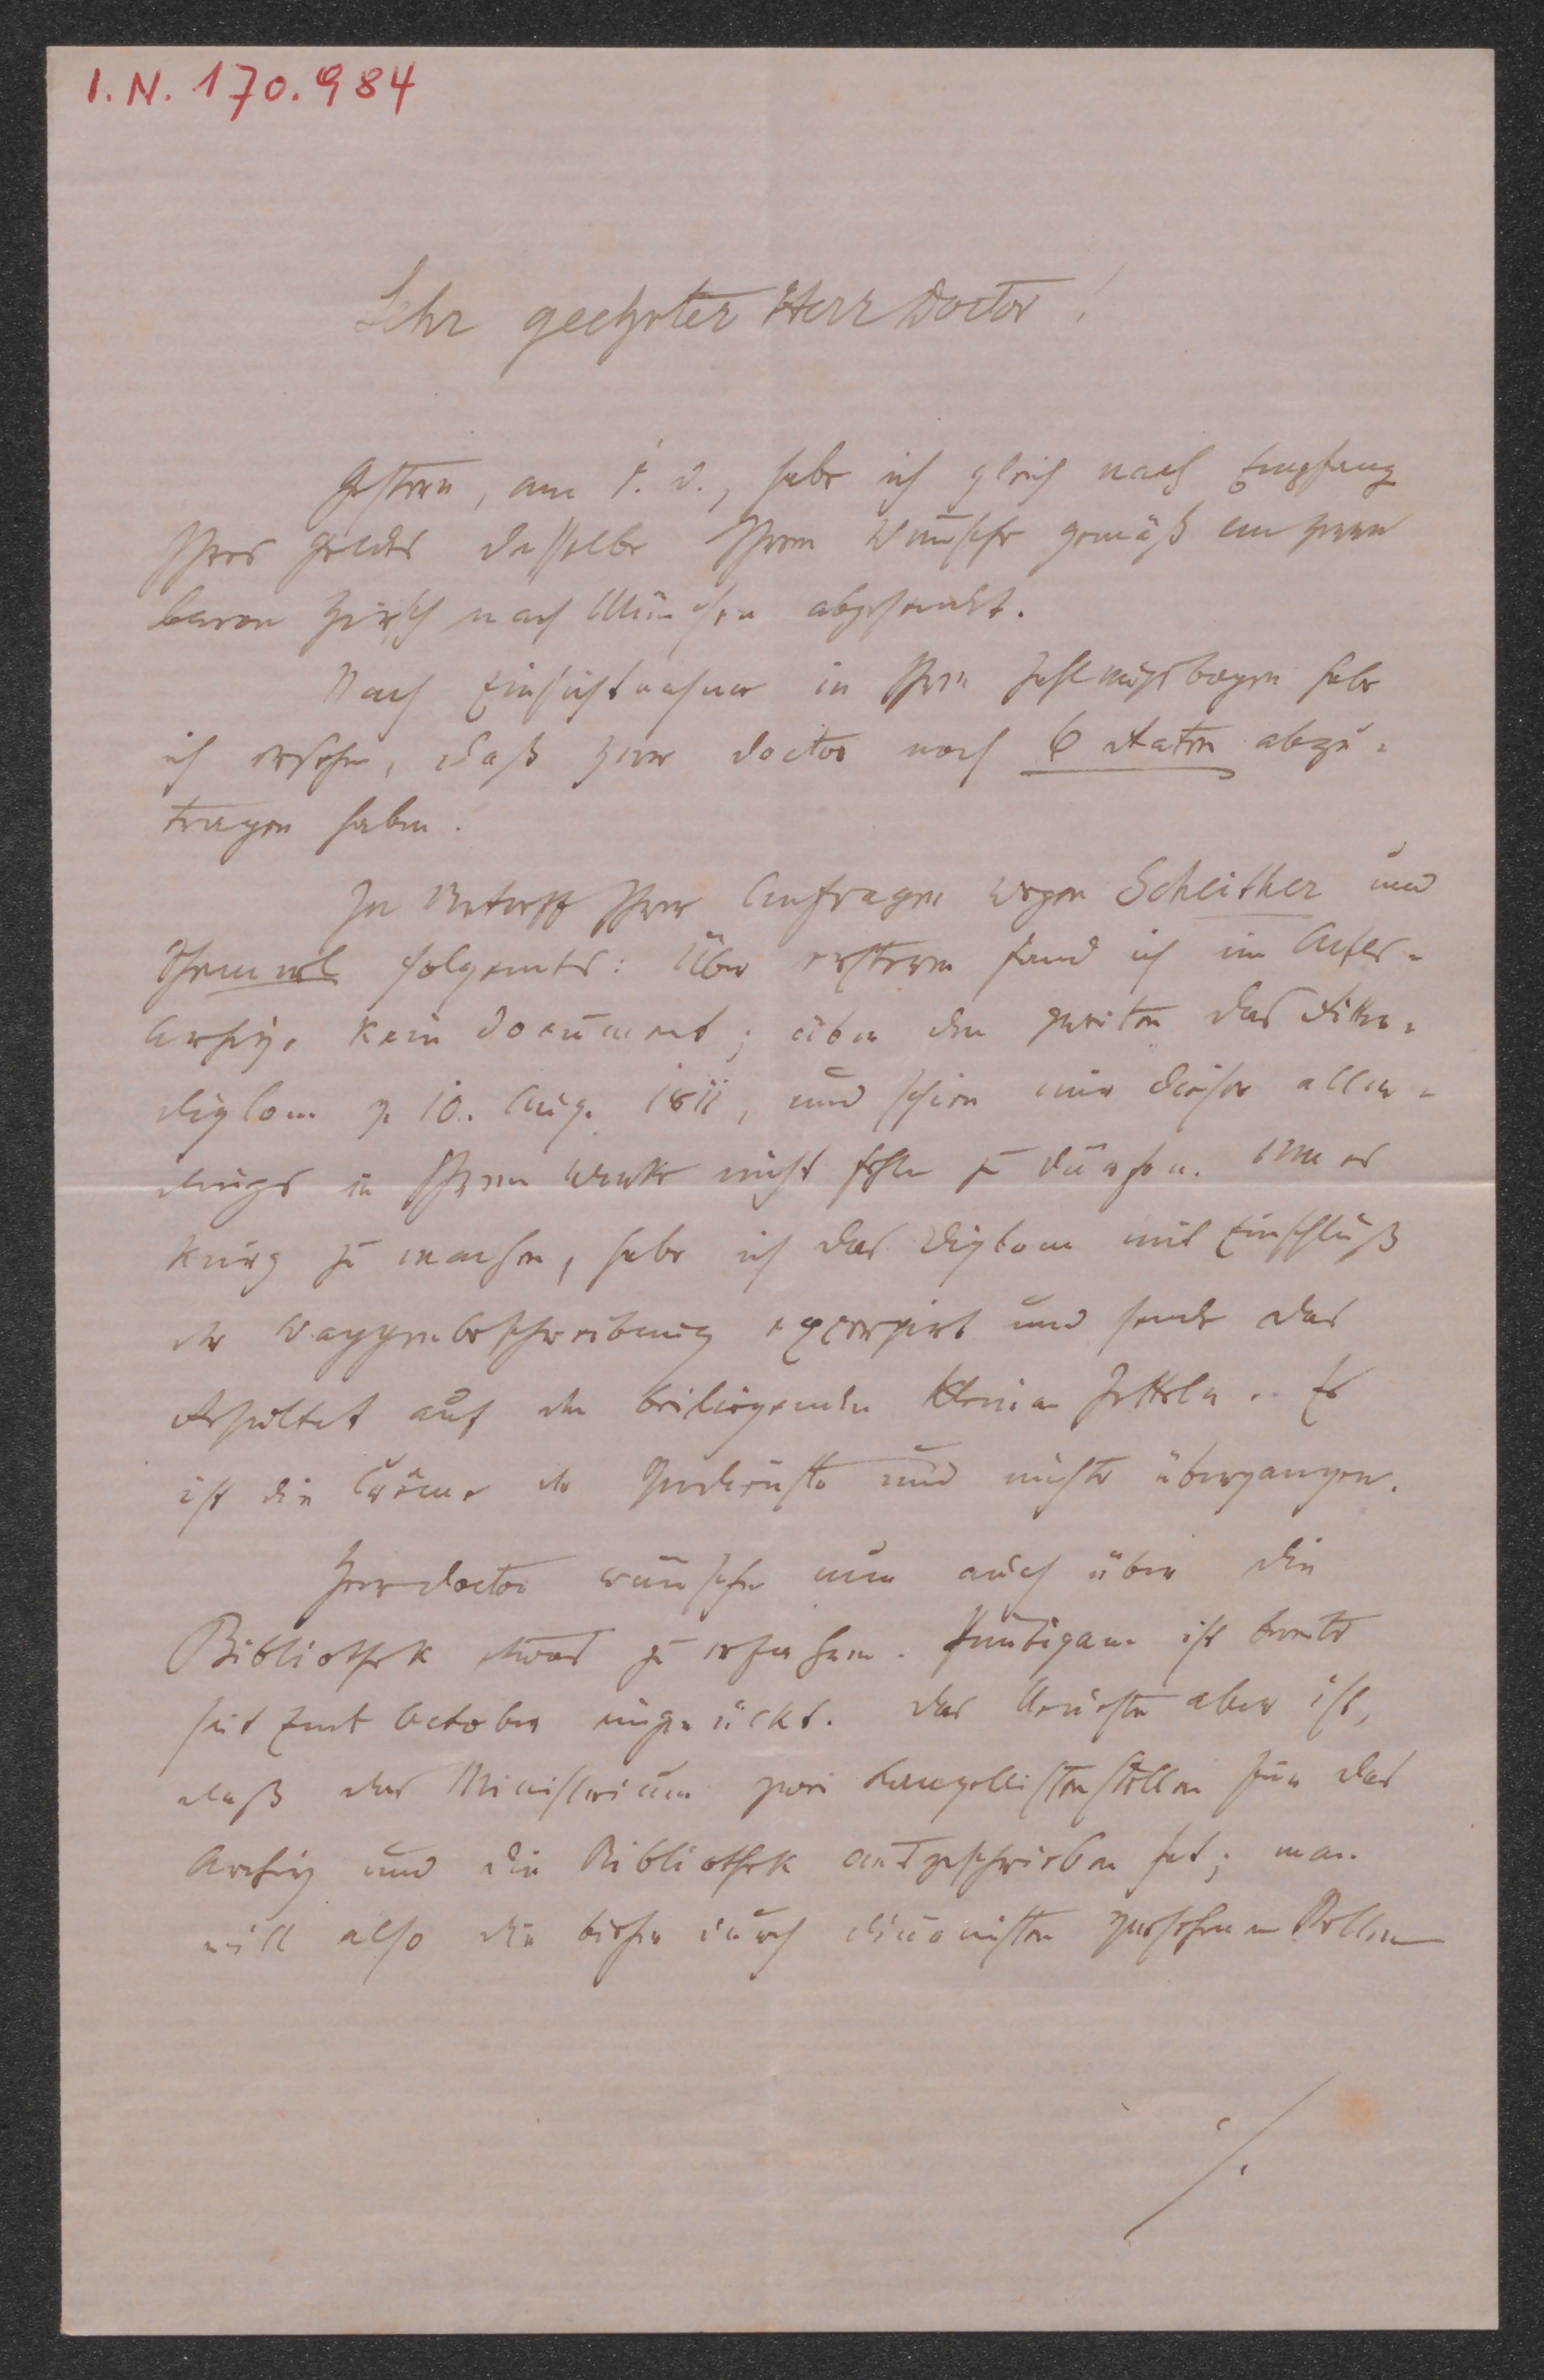 I.N. 170.984
Sehr geehrter Herr Doctor!
Gestern, am 1. d., habe ich gleich nach Empfang
Ihres Geldes dasselbe Ihrem Wunsche gemäß an Herrn
Baron Hirsch nach München abgesendet.
Nach Einsichtnahme in Ihren Zahlungsbogen habe
ich ersehen, daß Herr Doctor noch 6 Raten abzu-
tragen haben.
In Betreff Ihrer Anfragen wegen Scheither und
folgendes: Über ersteren fand ich im Adels-
Archive kein Document; über den zweiten das Ritter-
diplom v. 10. Aug. 1811, und schien mir dieser aller-
dings in Ihrem Werke nicht fehlen zu dürfen. Um es
kurz zu machen, habe ich das Diplom mit Einschluß
der Wappenbeschreibung excerpirt und sende das
Resultat auf den beiliegenden kleinen Zetteln. Es
ist die Crême der Verdienste und nichts übergangen.
Herr Doctor wünschen nun auch über die
Bibliothek etwas zu erfahren. ist bereits
seit Ende October eingerückt. Das Neueste aber ist,
daß das Ministerium zwei Kanzellistenstellen für das
Archiv und die Bibliothek ausgeschrieben hat; man
will also die bisher durch Diurnisten versehenen Stellen
./.